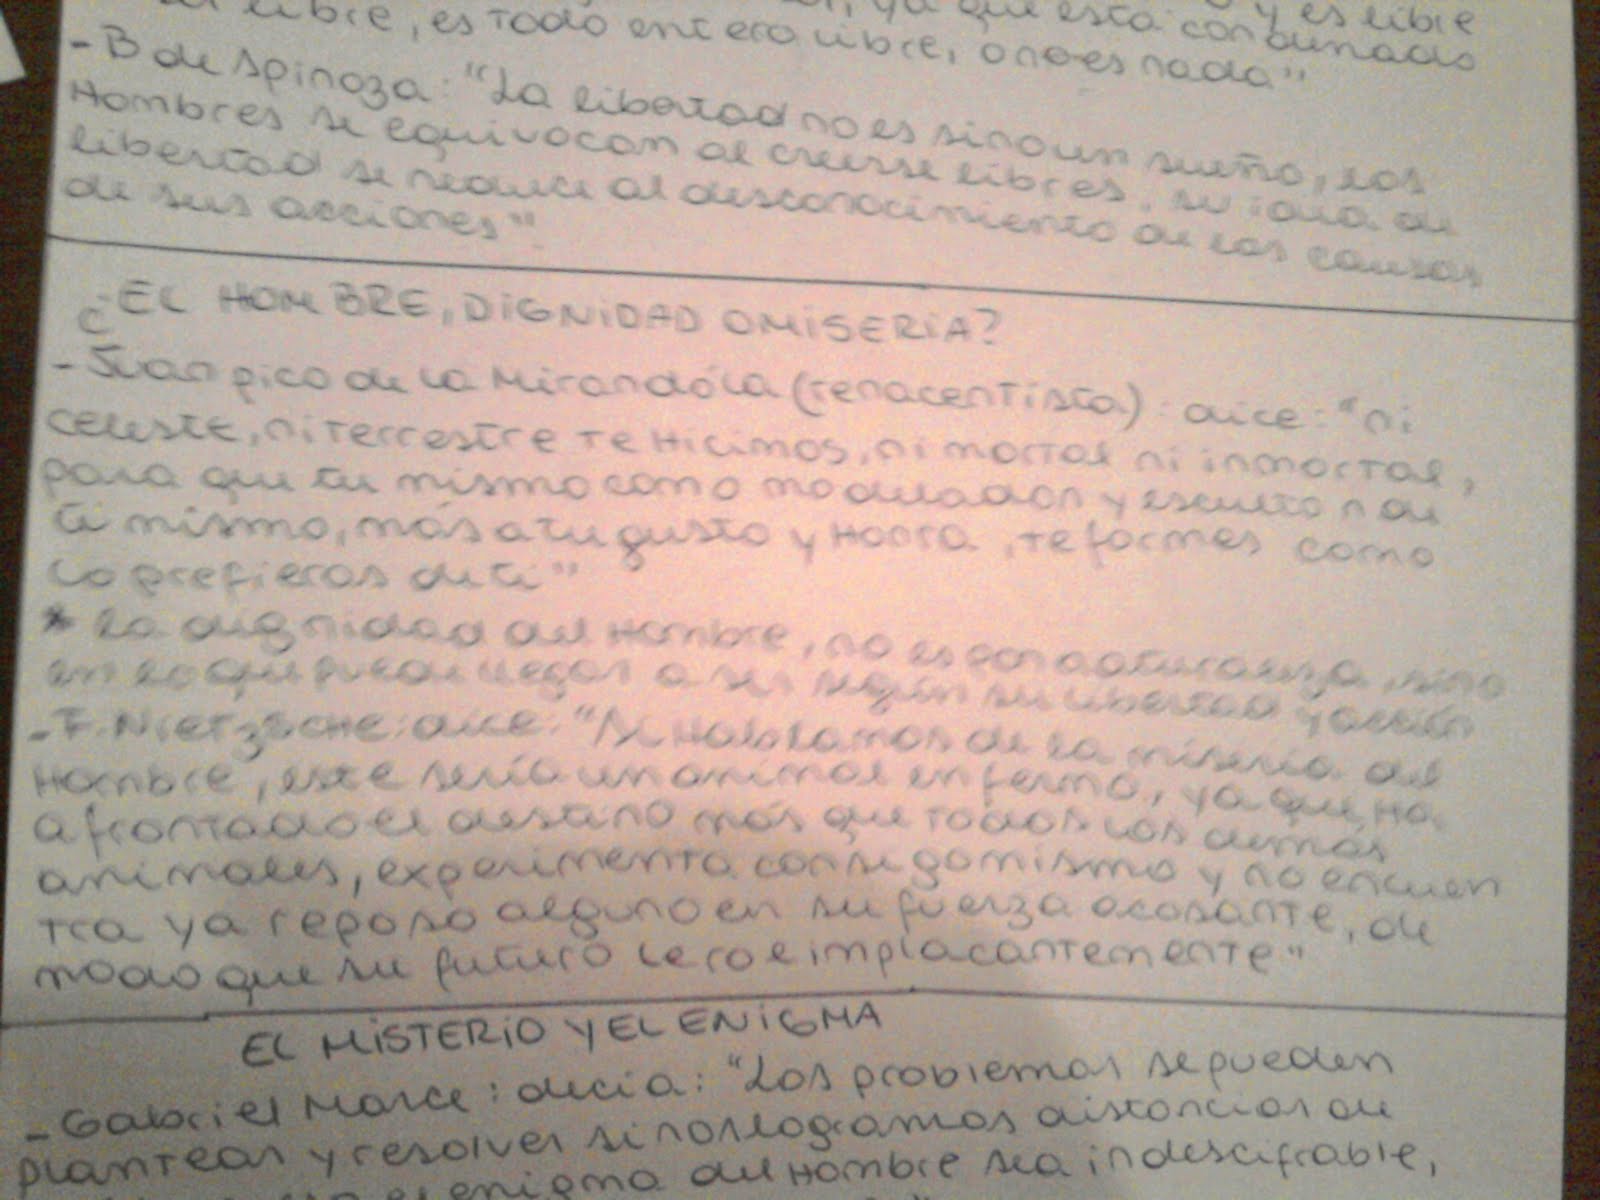 libre, es todo entero libre, o no es nada"
ya que está condenado
y es libre
- B de Spinoza: "La libertad no es sino un sueño, los
Hombres se equivocan al creerse libres, su idea de
libertad se reduce al desconocimiento de las causas
de sus acciones".
¿EL HOMBRE, DIGNIDAD O MISERIA?
- Juan pico de la Mirandóla (renacentista): dice: "ni
celeste, ni terrestre te Hicimos, ni mortal ni inmortal,
para que tu mismo como modelador y escultor de
ti mismo, más a tu gusto y Honra, te formes como
lo prefieras de ti"
* La dignidad del Hombre, no es por naturaleza, sino
en lo que puede llegar a ser según su libertad y acción
- F. NIETZSCHE: dice: "Si Hablamos de la miseria del
Hombre, este sería un animal enfermo, ya que, Ha
afrontado el destino más que todos los demás
animales, experimenta consigo mismo y no encuen
tra ya reposo alguno en su fuerza acosante, de
modo que su futuro le roe implacantemente"
EL MISTERIO Y EL ENIGMA
- Gabriel Marce: decia: "Los problemas se pueden
plantear y resolver si nos logramos distanciar de
enigma del Hombre sea indescifrable,